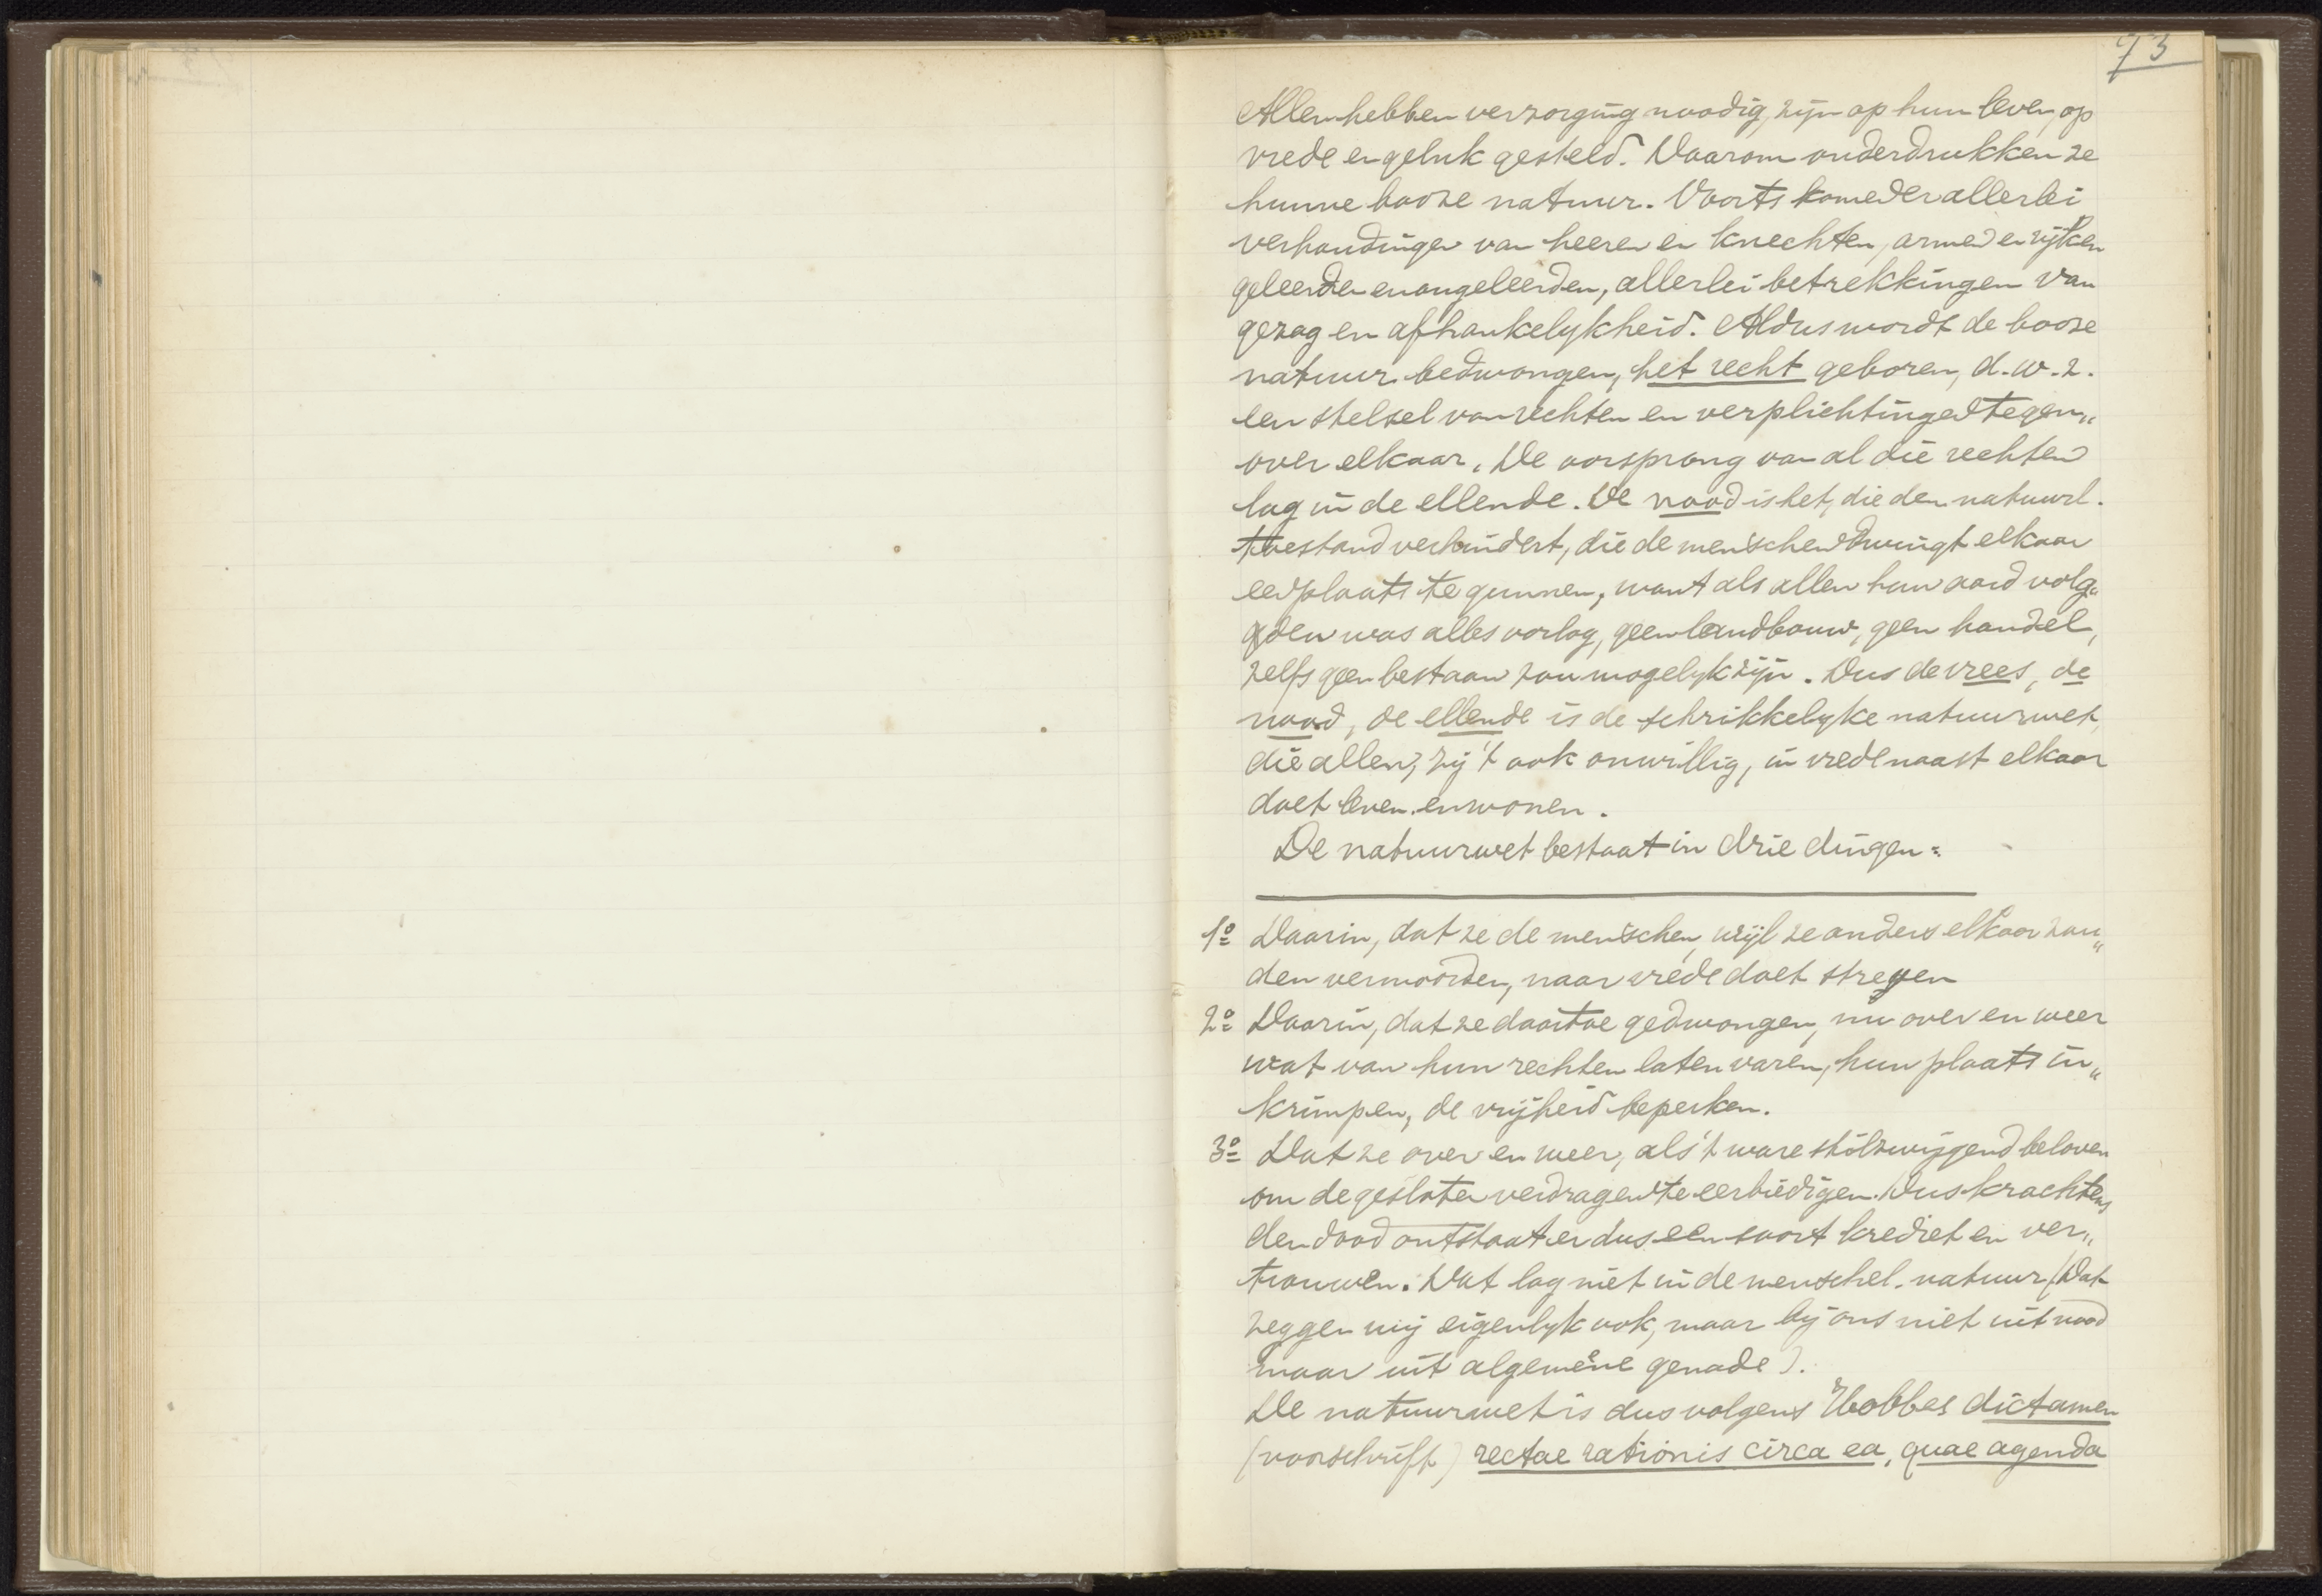 73
Allen hebben verzorging noodig, zijn op hun leven, op
vrede en geluk gesteld. Daarom onderdrukken ze
hunne booze natuur. Voorts komen er allerlei
verhoudingen van heeren en knechten, armen en rijken
geleerden en ongeleerden, allerlei betrekkingen van
gezag en afhankelykheid. Aldus wordt de booze
natuur bedwongen, het recht geboren, d.w.z.
een stelsel van rechten en verplichtingen tegen„
over elkaar. De oorsprong van al die rechten
lag in de ellende. De nood is het, die den natuurl.
toestand verhindert, die de menschen dwingt elkaar
een plaats te gunnen, want als allen hun aard volg„
den was alles oorlog, geen landbouw, geen handel,
zelfs geen bestaan zou mogelyk zijn. Dus de vrees, de
nood, de ellende is de schrikkelyke natuurwet,
die allen, zij 't ook onwillig, in vrede naast elkaar
doet leven en wonen.
De natuurwet bestaat in drie dingen:
1o Daarin, dat ze de menschen, wijl ze anders elkaar zou„
den vermoorden, naar vrede doet streven
2o Daarin, dat ze daartoe gedwongen, nu over en weer
wat van hun rechten laten varen, hun plaats in„
krimpen, de vrijheid beperken.
3o Dat ze over en weer, als 't ware stilzwijgend beloven
om de gesloten verdragen te eerbiedigen. Dus krachtens
den dood ontstaat er dus een soort krediet en ver„
trouwen. Dat lag niet in de menschel. natuur (Dat
zeggen wij eigenlyk ook, maar bij ons niet uit nood
maar uit algemeene genade).
De natuurwet is dus volgens Hobbes dictamen
(voorschrift) rectae rationis circa ea, quae agenda